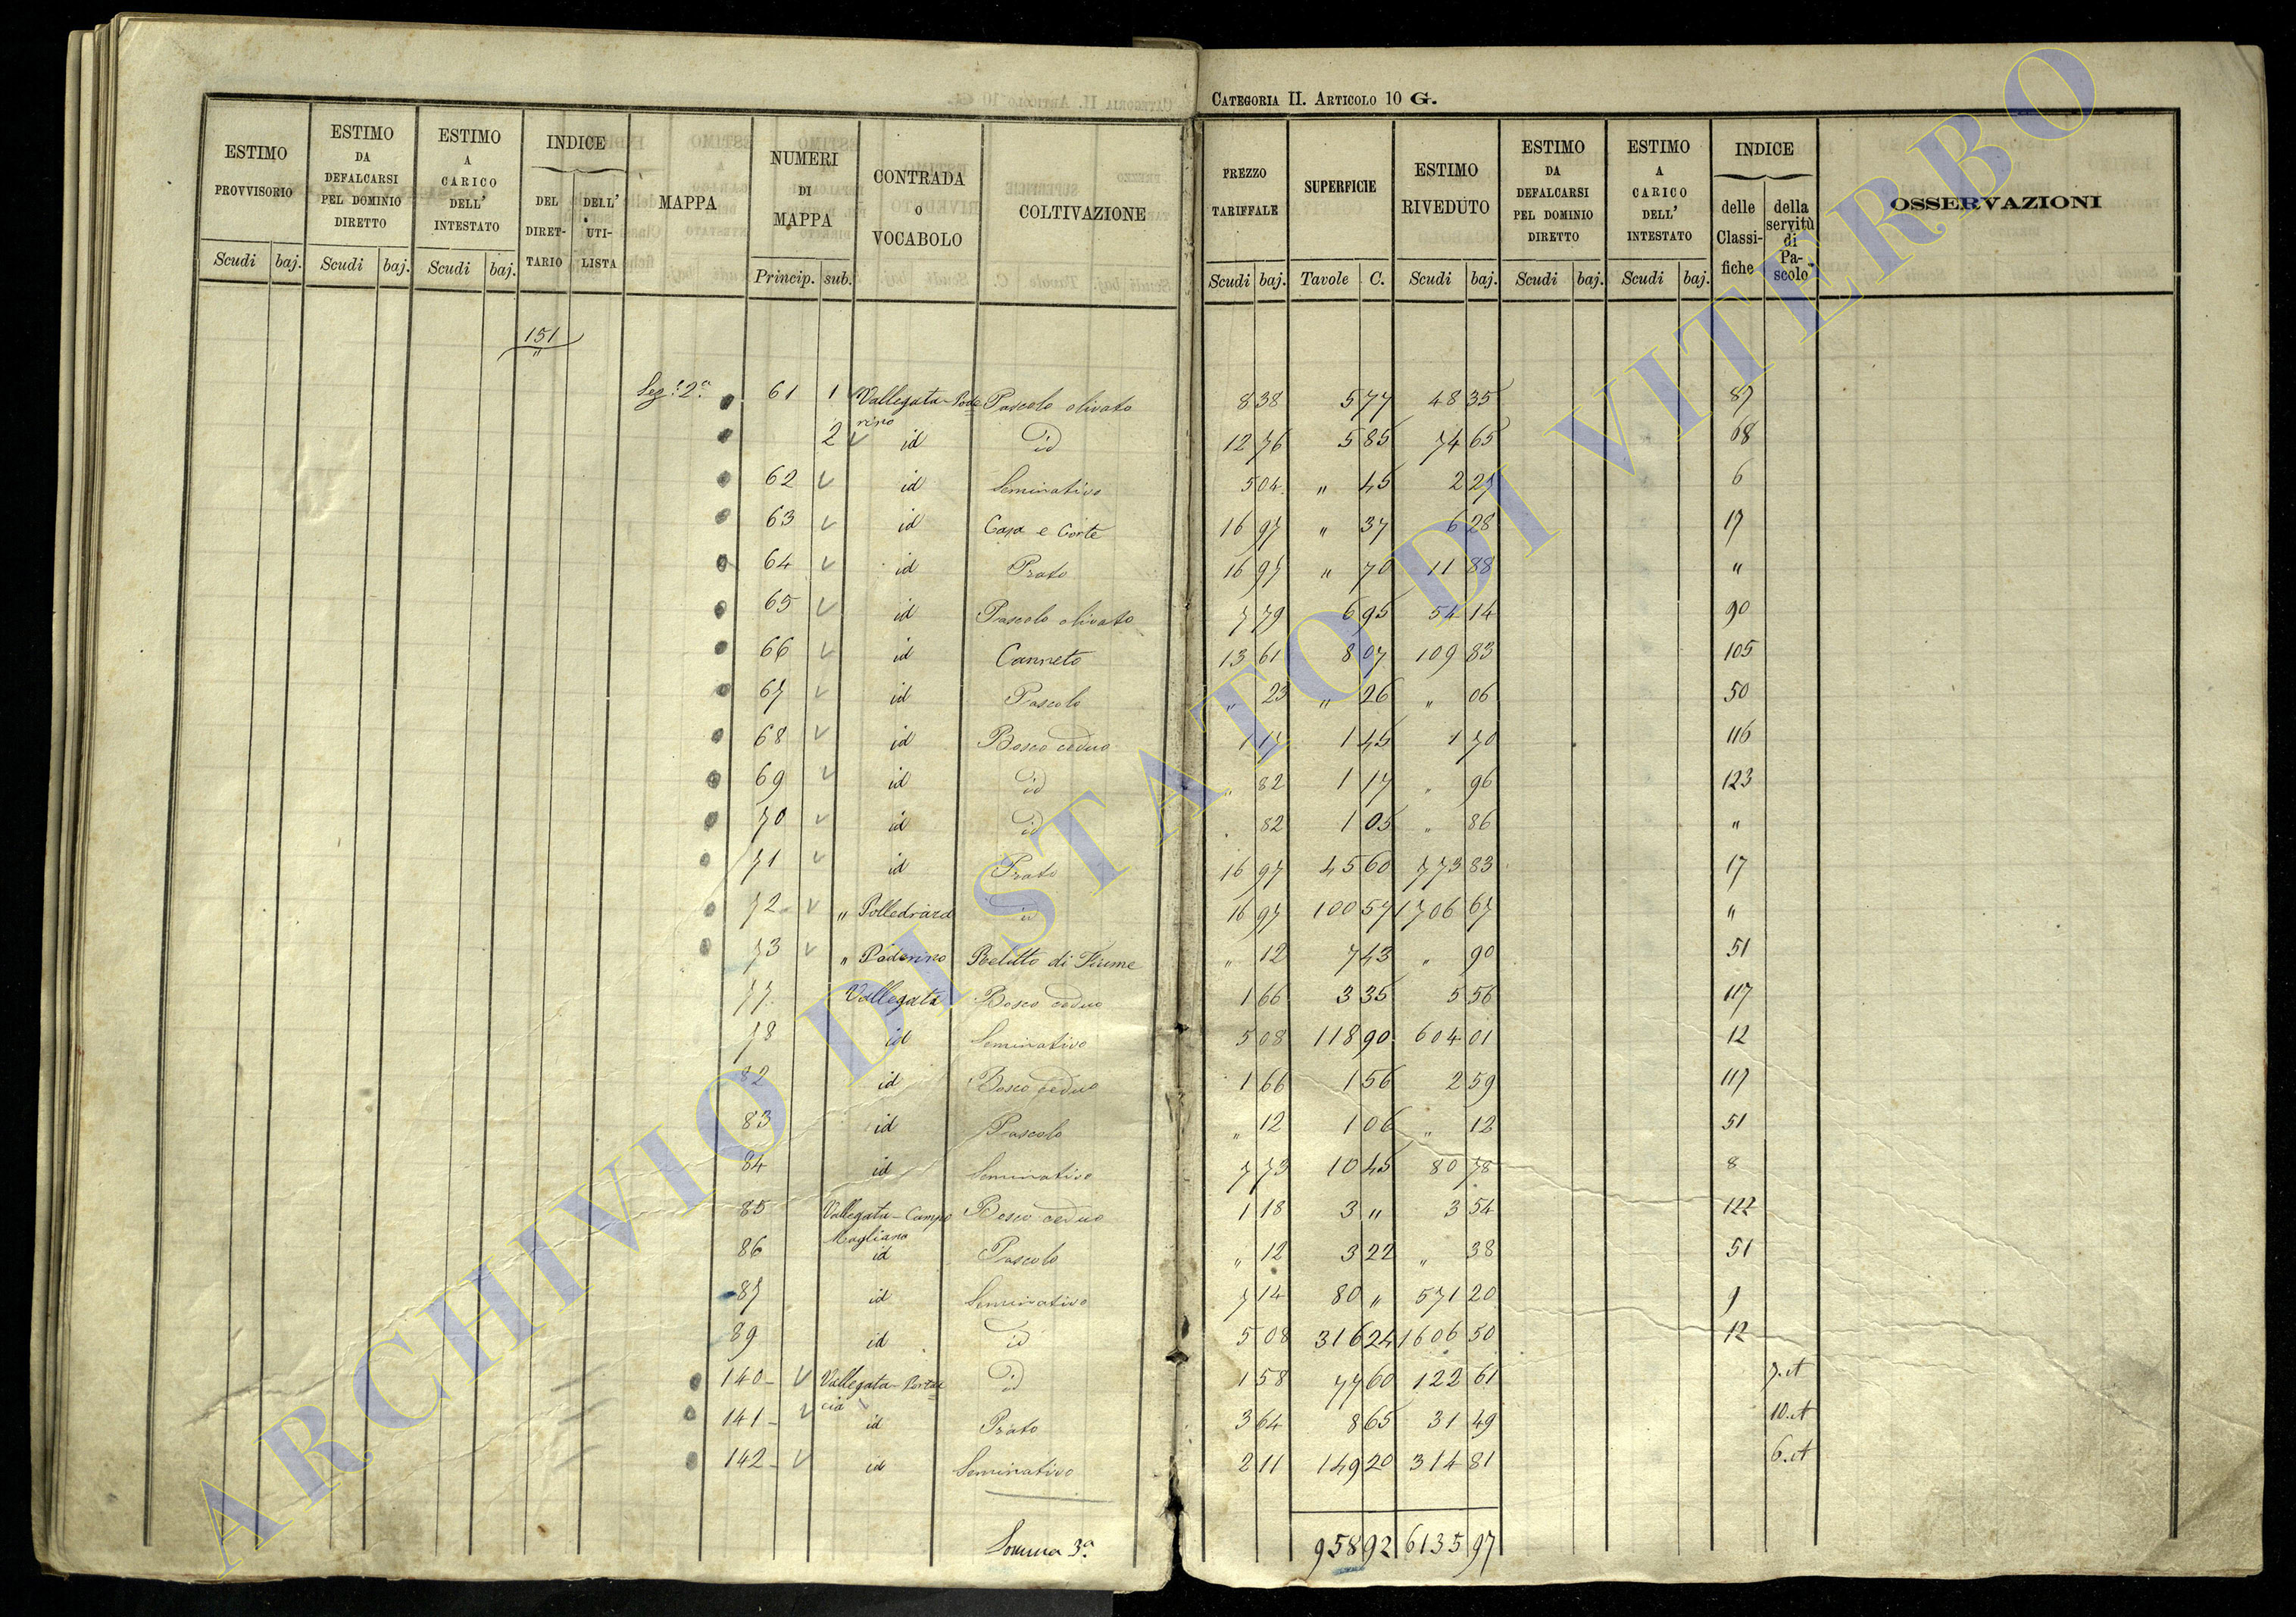 CATEGORIA II. ARTICOLO 10 G.
ESTIMO PROVVISORIO Scudi baj.
ESTIMO DA DEFALCARSI PEL DOMINIO DIRETTO Scudi baj.
ESTIMO A CARICO DELL' INTESTATO Scudi baj.
INDICE DEL DIRET- TARIO DELL' UTI- LISTA
MAPPA
NUMERI DI MAPPA Princip. sub.
CONTRADA O VOCABOLO
COLTIVAZIONE
PREZZO TARIFFALE Scudi baj.
SUPERFICIE Tavole C.
ESTIMO RIVEDUTO Scudi baj.
ESTIMO DA DEFALCARSI PEL DOMINIO DIRETTO Scudi baj.
ESTIMO A CARICO DELL' INTESTATO Scudi baj.
INDICE delle Classi- fiche della servitù di Pa- scolo
OSSERVAZIONI
151
"
Seg.e 2a 61 1 Vallegata-Pode Pascolo olivato 8 38 5 77 48 35 87
rino
2 id id 12 76 5 85 74 65 68
62 id Seminativo 5 04 " 45 2 27 6
63 id Casa e Corte 16 97 " 37 6 28 17
64 id Prato 16 97 " 70 11 88 "
65 id Pascolo olivato 7 79 6 95 54 14 90
66 id Canneto 13 61 8 07 109 83 105
67 id Pascolo " 23 " 26 " 06 50
68 id Bosco ceduo 1 17 1 45 1 70 116
69 id id " 82 1 17 " 96 123
70 id id " 82 1 05 " 86 "
71 id Prato 16 97 45 60 773 83 17
72 " Polledrara id 16 97 100 57 1706 67 "
73 " Poderino Relitto di Fiume " 12 7 43 " 90 51
77 Vallegata Bosco ceduo 1 66 3 35 5 56 117
78 id Seminativo 5 08 118 90 604 01 12
82 id Bosco ceduo 1 66 1 56 2 59 117
83 id Pascolo " 12 1 06 " 12 51
84 id Seminativo 7 73 10 45 80 78 8
85 Vallegata-Campo Bosco ceduo 1 18 3 " 3 54 122
Magliano
86 id Pascolo " 12 3 22 " 38 51
87 id Seminativo 7 14 80 " 571 20 9
89 id id 5 08 316 24 1606 50 12
140 Vallegata-Portac id 1 58 77 60 122 61 7.et
cia
141 id Prato 3 64 8 65 31 49 10.et
142 id Seminativo 2 11 149 20 314 81 6.et
Somma 3a. 958 92 6135 97
ARCHIVIO DI STATO DI VITERBO